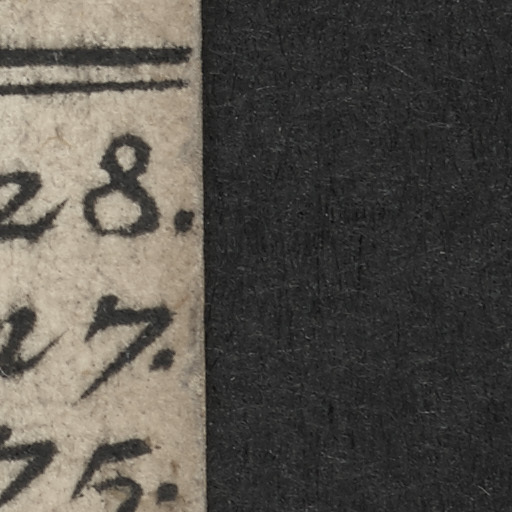 28.
27.
75.